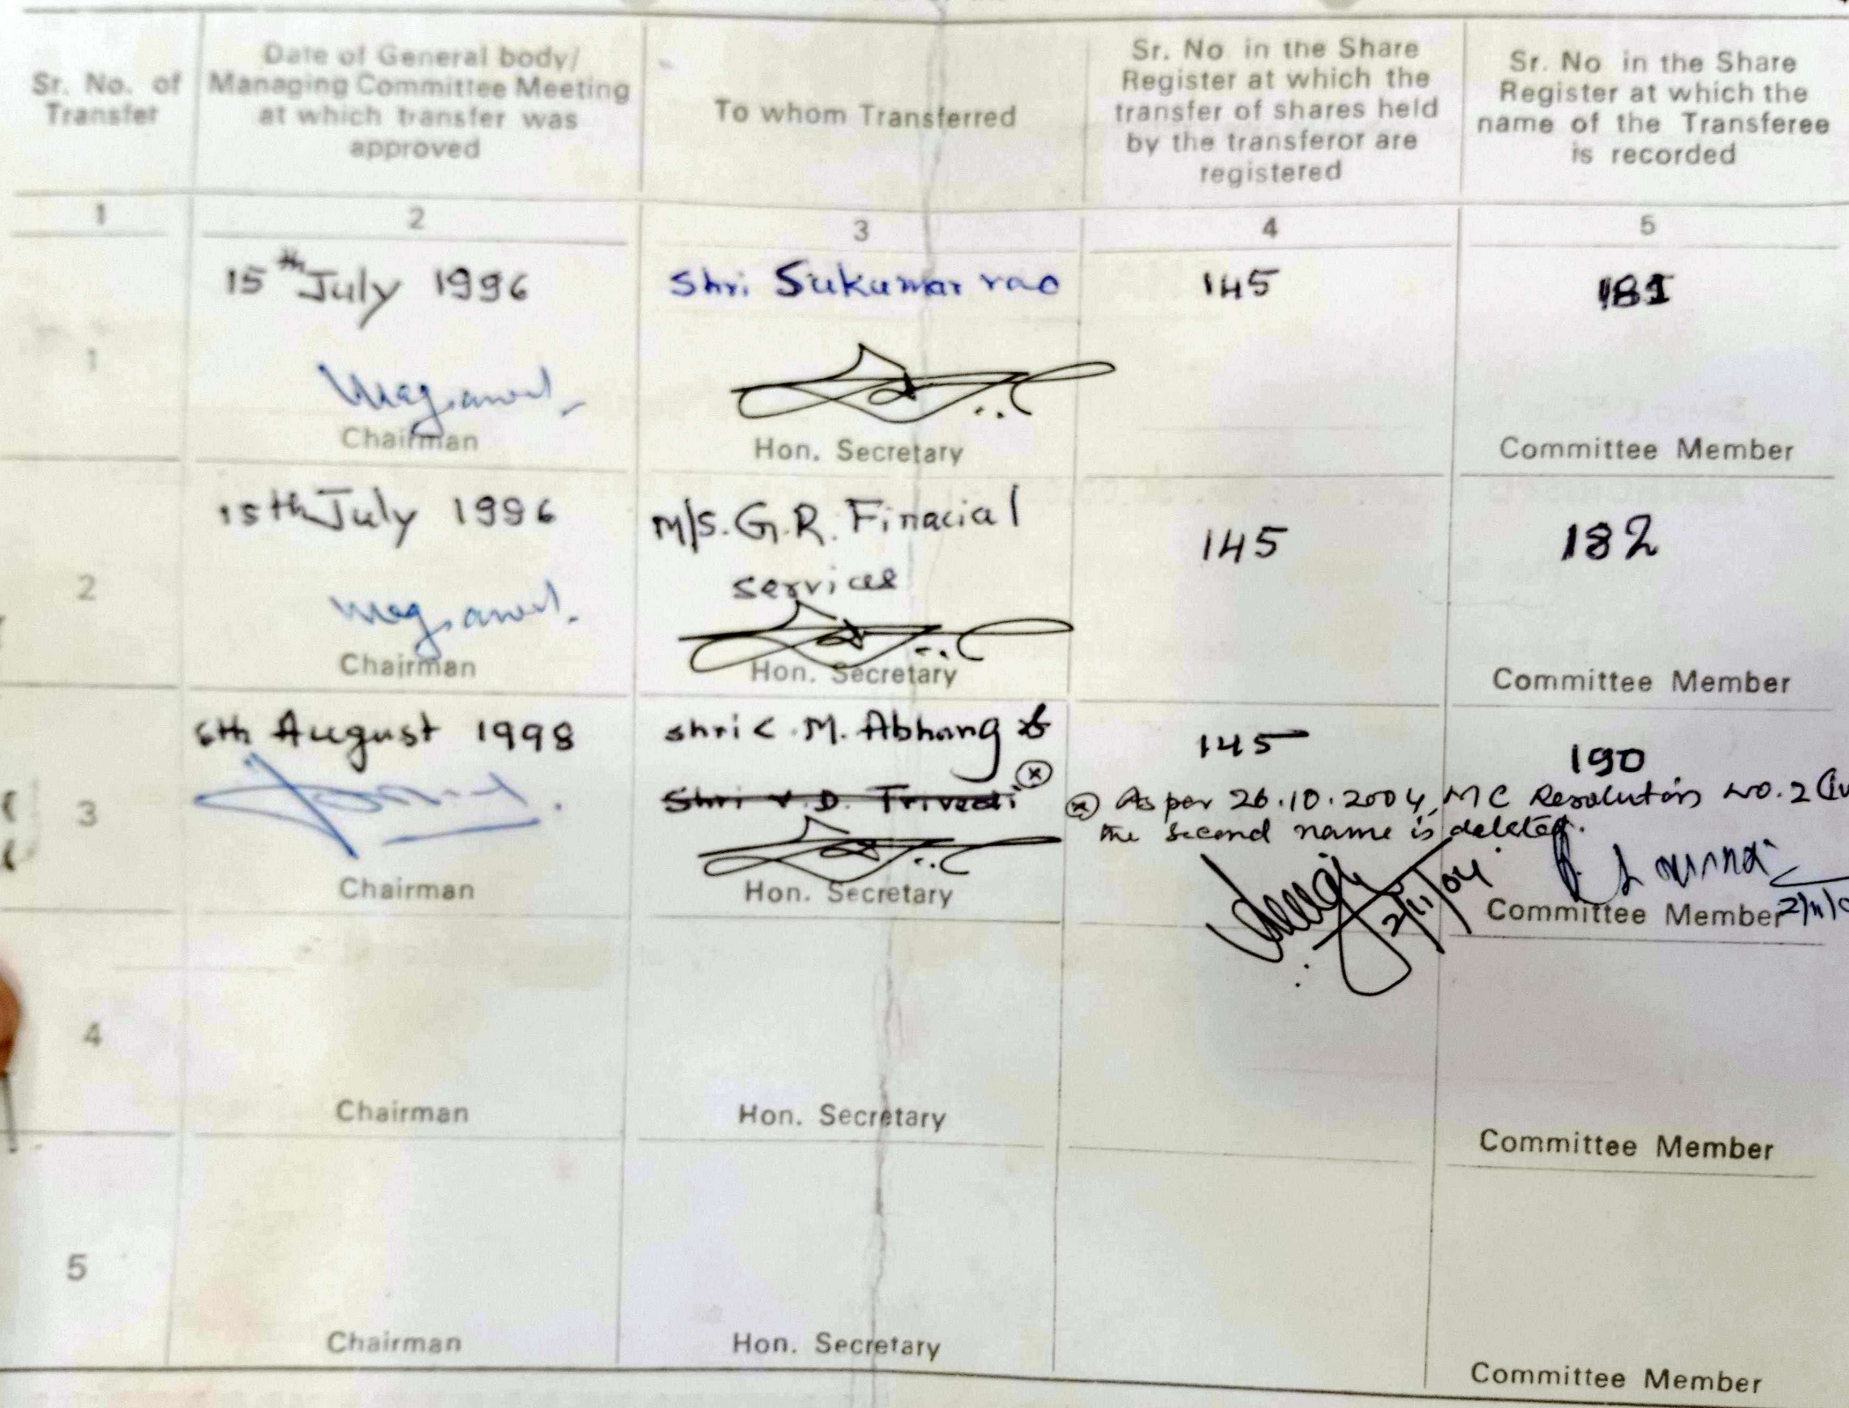 Sr. No. of
Transfer
Date of General body/
Managing Committee Meeting
at which transfer was
approved
To whom Transferred
Sr. No in the Share
Register at which the
transfer of shares held
by the transferor are
registered
Sr. No in the Share
Register at which the
name of the Transferee
is recorded
1 2 3 4 5
15th July 1996 Shri Sukumar rao 145 181
1
Chairman Hon. Secretary Committee Member
15th July 1996 M/s. G.R. Finacial 145 182
services
2
Chairman Hon. Secretary Committee Member
6th August 1998 Shri C.M. Abhang & 145 190
3 Shri V.D. Trivedi (x) (x) As per 26.10.2004, MC Resolution No. 2
the second name is deleted.
2/11/04
Chairman Hon. Secretary Committee Member
4
Chairman Hon. Secretary Committee Member
5
Chairman Hon. Secretary Committee Member